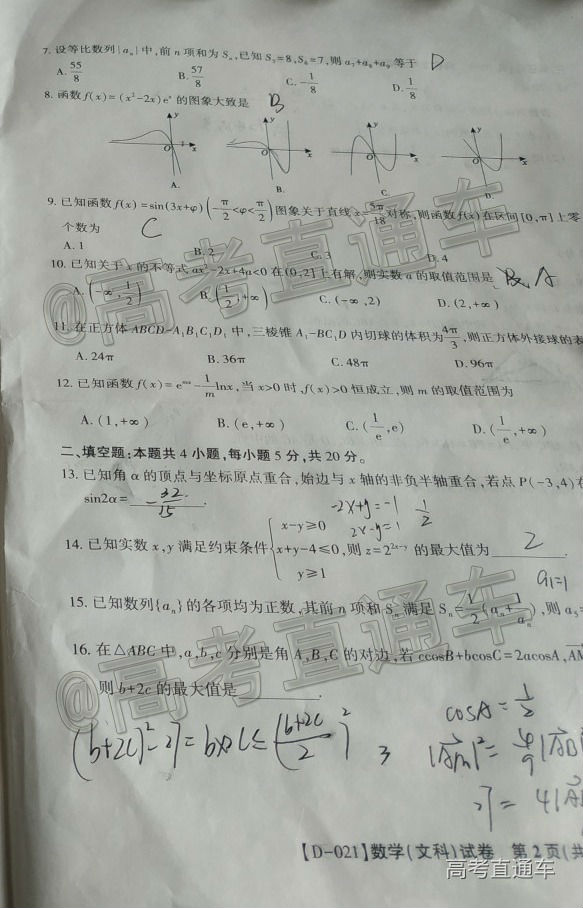 7. 设等比数列{aₙ}中,前 n 项和为 Sₙ,已知 S₃=8,S₆=7,则 a₇+a₈+a₉ 等于 D
A. 55/8 B. 57/8 C. -1/8 D. 1/8
8. 函数 f(x)=(x²-2x)eˣ 的图象大致是 B
y y y y
O x O x O x O x
A. B. C. D.
9. 已知函数 f(x)=sin(3x+φ)(-π/2<φ<π/2)图象关于直线 x=5π/18 对称,则函数 f(x)在区间[0,π]上零
个数为 C
A. 1 B. 2 C. 3 D. 4
10. 已知关于 x 的不等式 ax²-2x+4a<0 在(0,2]上有解,则实数 a 的取值范围是 A
A. (-∞,1/2) B. (1/2,+∞) C. (-∞,2) D. (2,+∞)
11. 在正方体 ABCD-A₁B₁C₁D₁ 中,三棱锥 A₁-BC₁D 内切球的体积为 4π/3,则正方体外接球的表
A. 24π B. 36π C. 48π D. 96π
12. 已知函数 f(x)=eᵐˣ-1/m lnx,当 x>0 时,f(x)>0 恒成立,则 m 的取值范围为
A. (1,+∞) B. (e,+∞) C. (1/e,e) D. (1/e,+∞)
二、填空题:本题共 4 小题,每小题 5 分,共 20 分。
13. 已知角 α 的顶点与坐标原点重合,始边与 x 轴的非负半轴重合,若点 P(-3,4)在
sin2α= -32/15
-2x+y=-1 1/2
2x-y=1
14. 已知实数 x,y 满足约束条件{x-y≥0 x+y-4≤0 y≥1,则 z=2²ˣ⁻ʸ 的最大值为 2
a₁=1
15. 已知数列{aₙ}的各项均为正数,其前 n 项和 Sₙ 满足 Sₙ=1/2(aₙ+1/aₙ),则 a₅=
16. 在△ABC 中,a,b,c 分别是角 A,B,C 的对边,若 ccosB+bcosC=2acosA,AM
则 b+2c 的最大值是
cosA=1/2
(b+2c)²-27=b×2c≤((b+2c)/2)² 3 |AM|²=4/9|AD
27=4|A
【D-021】数学(文科)试卷 第 2 页(共
@高考直通车
@高考直通车
高考直通车